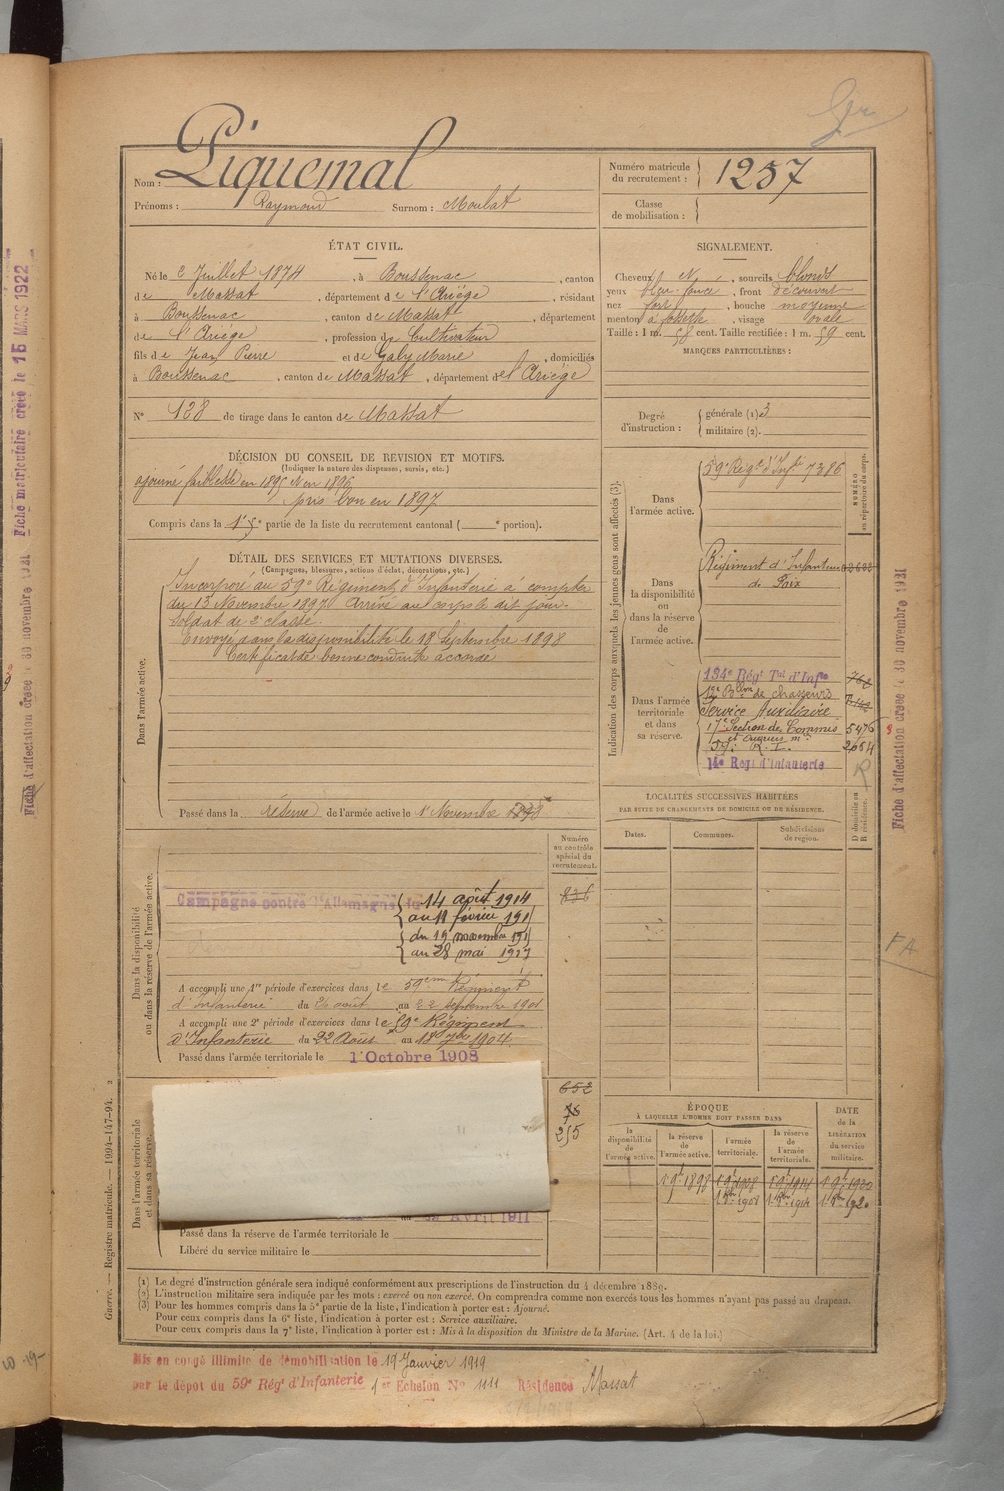 Nom : Piquemal
Prénoms : Raymond Surnom : Moulat
Numéro matricule du recrutement : 1257
Classe de mobilisation :
ÉTAT CIVIL.
Né le 2 Juillet 1874, à Boussenac, canton
de Massat, département de l'Ariège, résidant
à Boussenac, canton de Massat, département
de l'Ariège, profession de Cultivateur
fils de Jean Pierre et de Galy Marie, domiciliés
à Boussenac, canton de Massat, département de l'Ariège
N° 128 de tirage dans le canton de Massat
SIGNALEMENT.
Cheveux N, sourcils blonds
yeux bleu foncé, front découvert
nez fort, bouche moyenne
menton à fossette, visage ovale
Taille : 1 m. 58 cent. Taille rectifiée : 1 m. 59 cent.
MARQUES PARTICULIÈRES :
Degré d'instruction : générale (1) 3
militaire (2).
DÉCISION DU CONSEIL DE REVISION ET MOTIFS.
(Indiquer la nature des dispenses, sursis, etc.)
ajourné faiblesse en 1895 et en 1896
pris bon en 1897
Compris dans la 1e partie de la liste du recrutement cantonal ( e portion).
DÉTAIL DES SERVICES ET MUTATIONS DIVERSES.
(Campagnes, blessures, actions d'éclat, décorations, etc.)
Dans l'armée active.
Incorporé au 59e Régiment d'Infanterie à compter
du 13 Novembre 1897. Arrivé au corps le dit jour.
Soldat de 2e classe.
Envoyé dans la disponibilité le 18 Septembre 1898
Certificat de bonne conduite accordé
Passé dans la réserve de l'armée active le 1er Novembre 1898
Numéro au contrôle spécial du recrutement.
Dans la disponibilité ou dans la réserve de l'armée active.
836
Campagne contre l'Allemagne du 14 août 1914
au 11 février 191
du 19 novembre 191
au 28 mai 1917
A accompli une 1re période d'exercices dans le 59eme Régiment
d'Infanterie du 26 août au 22 septembre 1901
A accompli une 2e période d'exercices dans le 59e Régiment
d'Infanterie du 22 Août au 18 7bre 1904.
Passé dans l'armée territoriale le 1 Octobre 1908
Dans l'armée territoriale et dans sa réserve.
652
78
255
Avril 1911
Passé dans la réserve de l'armée territoriale le
Libéré du service militaire le
Indication des corps auxquels les jeunes gens sont affectés (3).
NUMÉRO au répertoire du corps.
Dans l'armée active.
59e Régt d'Infie 7386
Dans la disponibilité ou dans la réserve de l'armée active.
Régiment d'Infanterie
de Foix
Dans l'armée territoriale et dans sa réserve.
134e Régt Tal d'Infie 762
12e Bllon de chasseurs
Service Auxiliaire
17e Section de Commis 5476
et ouvriers
59e R. I. 2654
14e Régt d'Infanterie
R
LOCALITÉS SUCCESSIVES HABITÉES
PAR SUITE DE CHANGEMENTS DE DOMICILE OU DE RÉSIDENCE.
Dates. Communes. Subdivisions de région. D domicile ou R résidence.
ÉPOQUE
À LAQUELLE L'HOMME DOIT PASSER DANS
la disponibilité de l'armée active. la réserve de l'armée active. l'armée territoriale. la réserve de l'armée territoriale. DATE de la LIBÉRATION du service militaire.
1 9t 1898 1 9t 1908 1 9t 1914 1 9t 1920
1 8bre 1908 1 8bre 1914 1 8bre 1920
(1) Le degré d'instruction générale sera indiqué conformément aux prescriptions de l'instruction du 4 décembre 1889.
(2) L'instruction militaire sera indiquée par les mots : exercé ou non exercé. On comprendra comme non exercés tous les hommes n'ayant pas passé au drapeau.
(3) Pour les hommes compris dans la 5e partie de la liste, l'indication à porter est : Ajourné.
Pour ceux compris dans la 6e liste, l'indication à porter est : Service auxiliaire.
Pour ceux compris dans la 7e liste, l'indication à porter est : Mis à la disposition du Ministre de la Marine. (Art. 4 de la loi.)
Mis en congé illimité de démobilisation le 19 Janvier 1919
par le dépot du 59e Régt d'Infanterie 1er Echelon No 1111 Résidence Massat
Guerre. — Registre matricule. — 1994-147-94. 2
Fiche matriculaire créée le 15 MARS 1922
Fiche d'affectation créée le 30 novembre 1921
Fiche d'affectation créée le 30 novembre 1921
FA